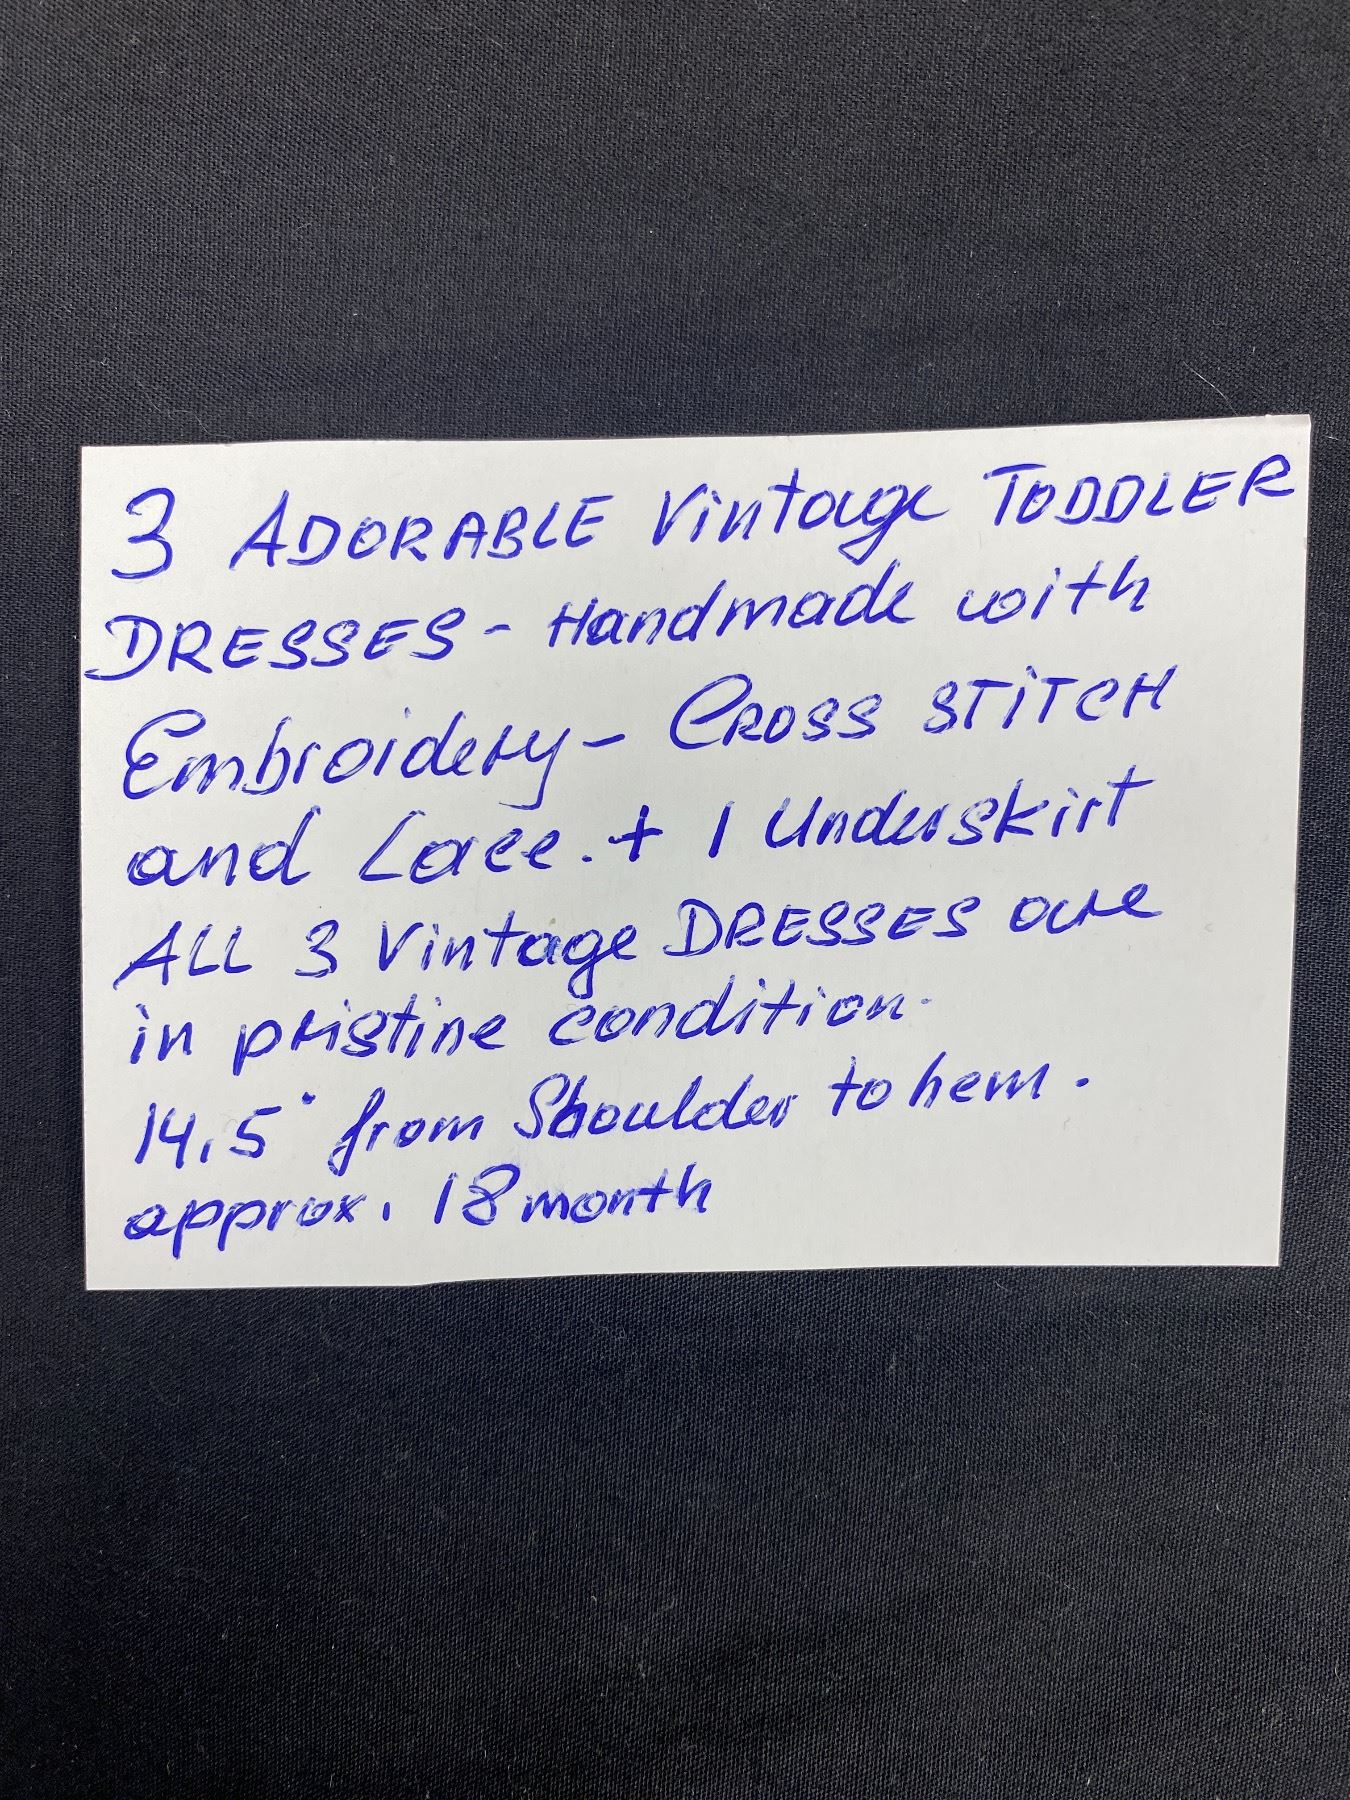 3 ADORABLE Vintage TODDLER
DRESSES - Handmade with
Embroidery - CROSS STITCH
and Lace. + 1 Underskirt
ALL 3 Vintage DRESSES are
in pristine condition.
14,5" from Shoulder to hem.
approx. 18 month